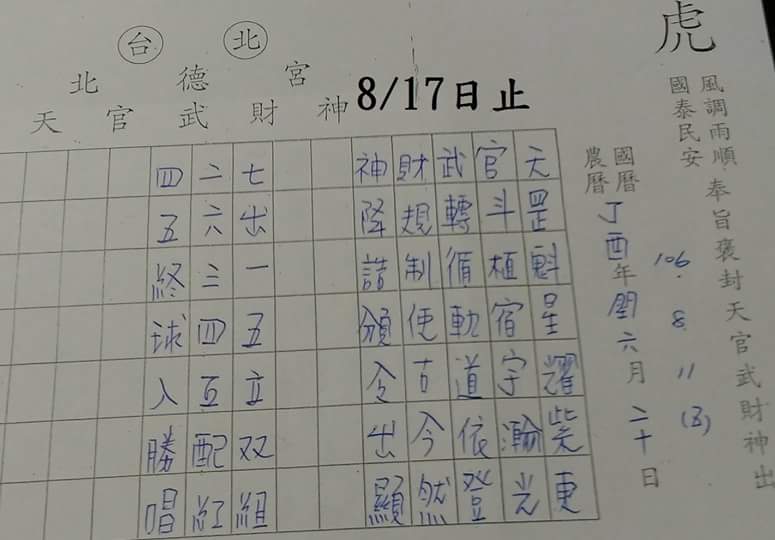 虎
風調雨順
國泰民安
奉旨褒封天官武財神出
國曆
農曆
丁酉年閏六月二十日
106.8.11(五)
台北
北德宮
天官武財神
8/17日止
天罡魁星耀紫更
官斗植宿宇瀚光
武轉循軌道依登
財規制使古今然
神降詰頒令出顯
七出一五立双組
二六三四互配紅
四五終球入勝唱